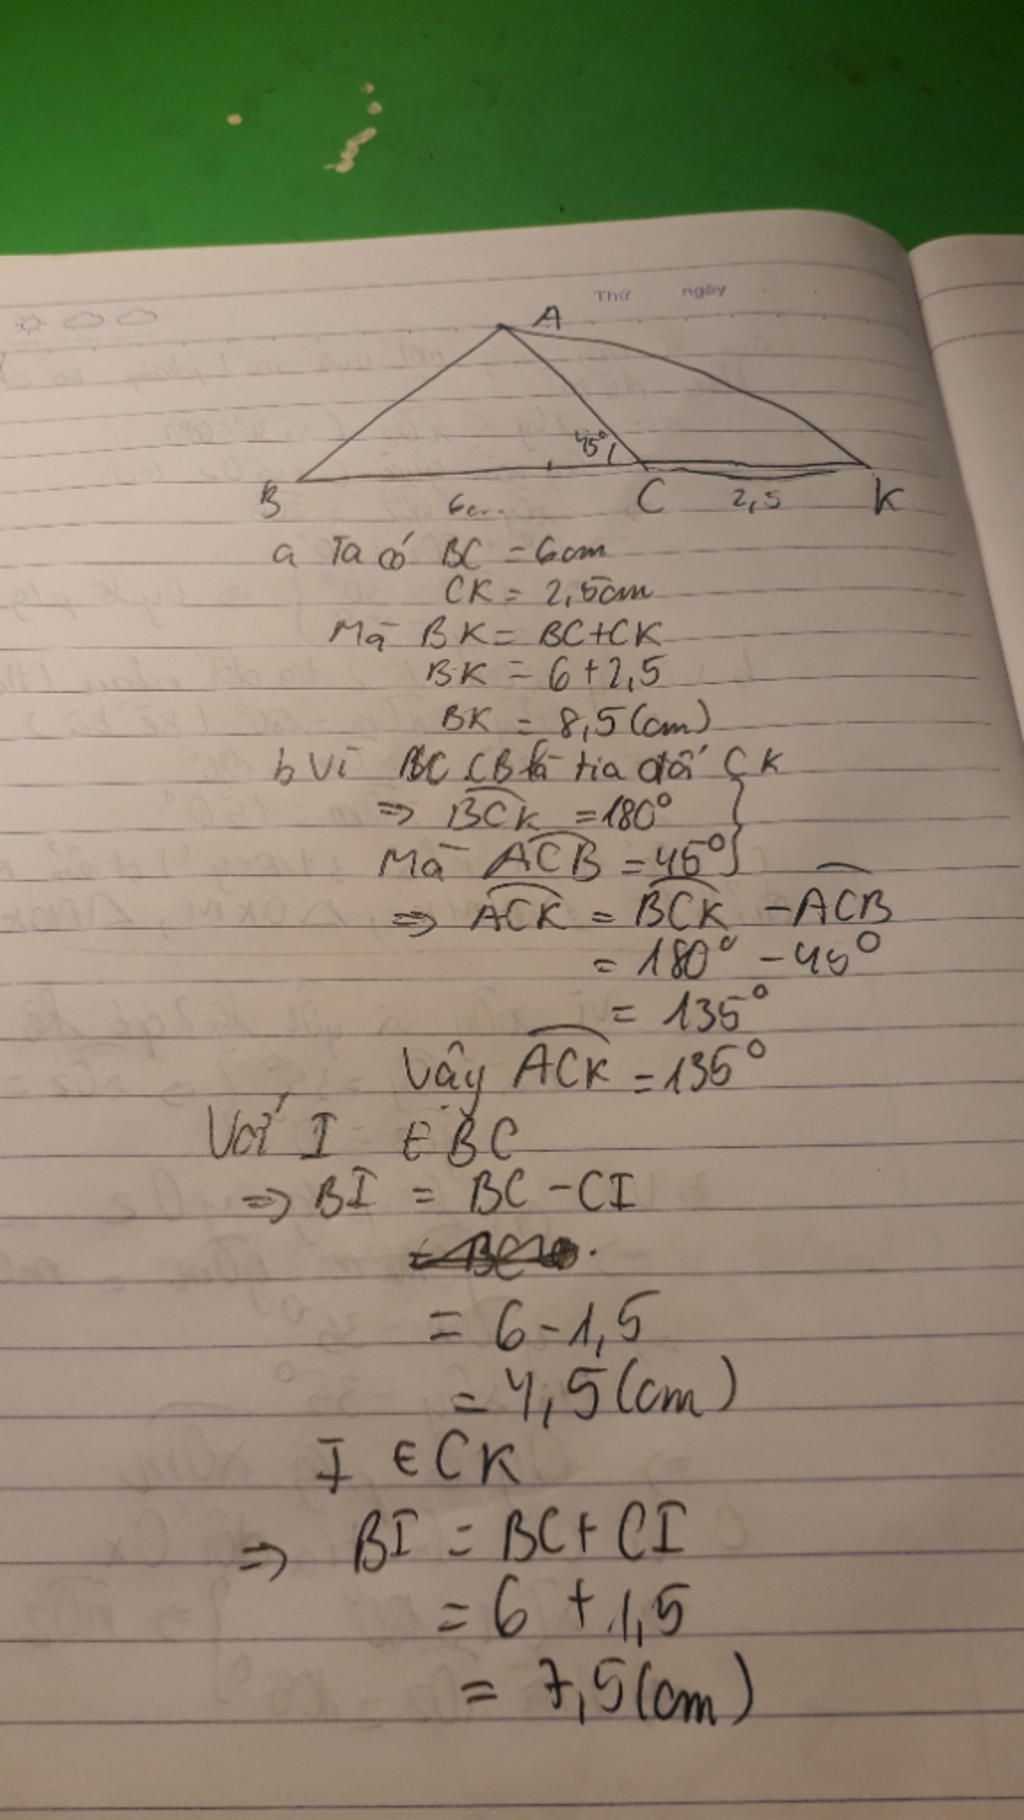 Thứ ngày
A
45°
B 6cm C 2,5 K
a Ta có BC = 6cm
CK = 2,5cm
Mà BK = BC+CK
BK = 6+2,5
BK = 8,5(cm)
b Vì CB là tia đối CK
=> BCK = 180°
Mà ACB = 45°
=> ACK = BCK - ACB
= 180° - 45°
= 135°
Vậy ACK = 135°
Với I ∈ BC
=> BI = BC - CI
= 6 - 1,5
= 4,5(cm)
I ∈ CK
=> BI = BC + CI
= 6 + 1,5
= 7,5(cm)